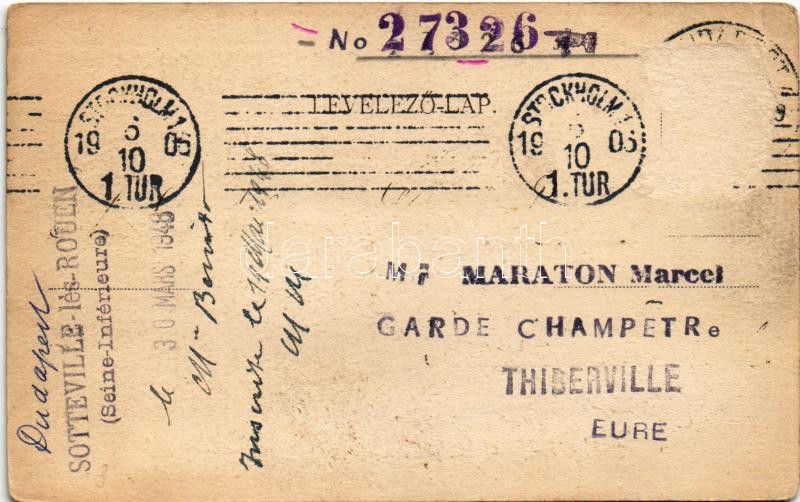 No 27326
STOCKHOLM 1
19 05
10
1. TUR
LEVELEZŐ-LAP.
STOCKHOLM 1
19 05
10
1. TUR
darabanth
Mr MARATON Marcel
GARDE CHAMPETRe
THIBERVILLE
EURE
Budapest
SOTTEVILLE-lès-ROUEN
(Seine-Inférieure)
le 30 MARS 1948
Inscrite le